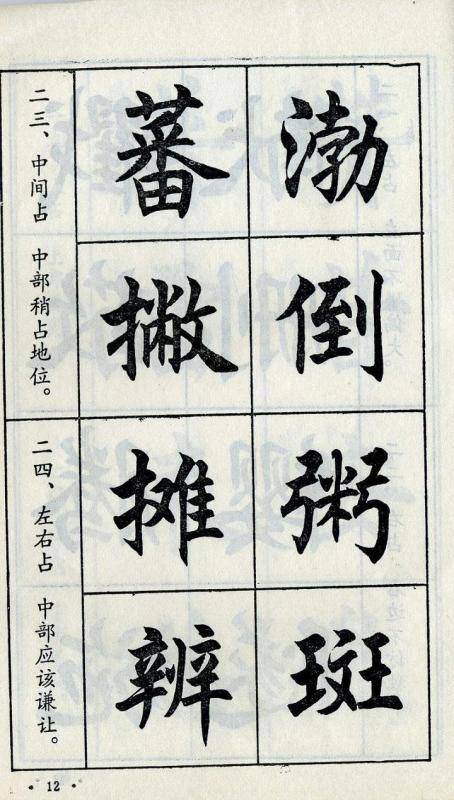 渤
倒
蕃
撇
二三、中间占 中部稍占地位。
粥
斑
摊
辨
二四、左右占 中部应该谦让。
·12·